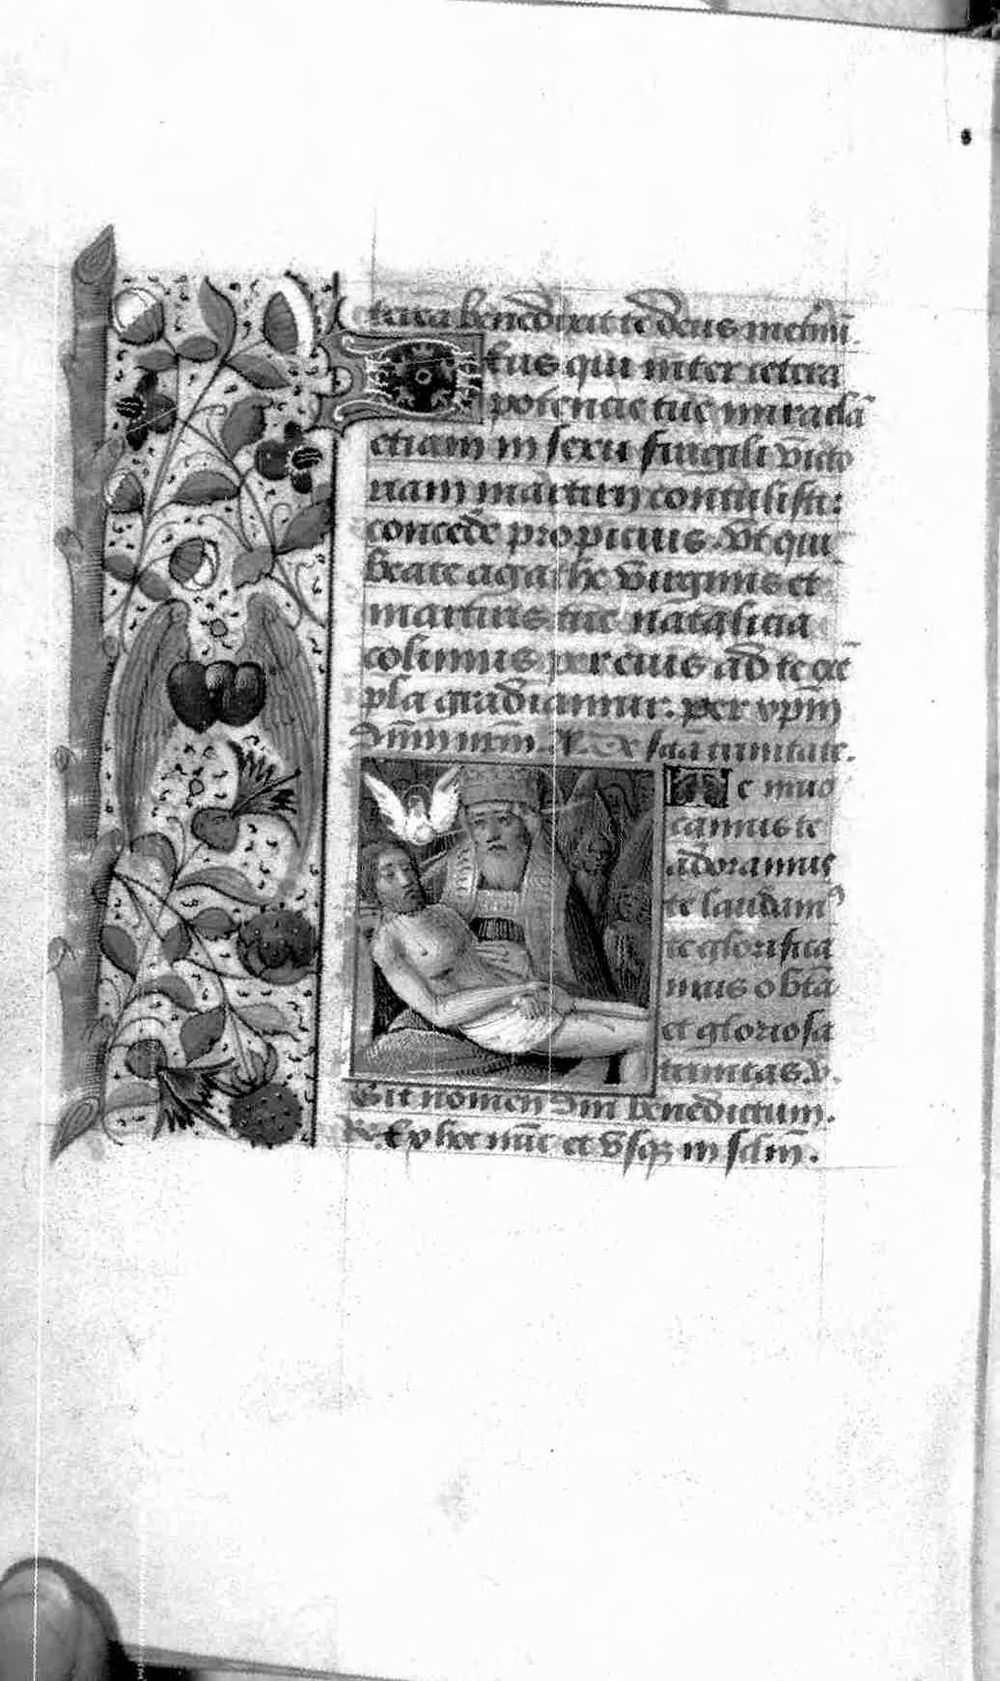 terea benedixit te deus in eternū.
Deus qui inter cetera
potencie tue miracla
etiam in sexu fragili victo
riam martirii contulisti:
concede propicius. vt qui
beate agathe virginis et
martiris tue natalicia
colimus per eius ad te exē
pla gradiamur. per xp̄m
dn̄m nr̄m. De sc̄ā trinitate.
Te inuo
camus te
adoramus
te laudamꝰ
te glorifica
mus o btā
et gloriosa
trinitas. v.
Sit nomen dn̄i benedictum.
R. Ex hoc nūc et vsqꝫ in sclm̄.